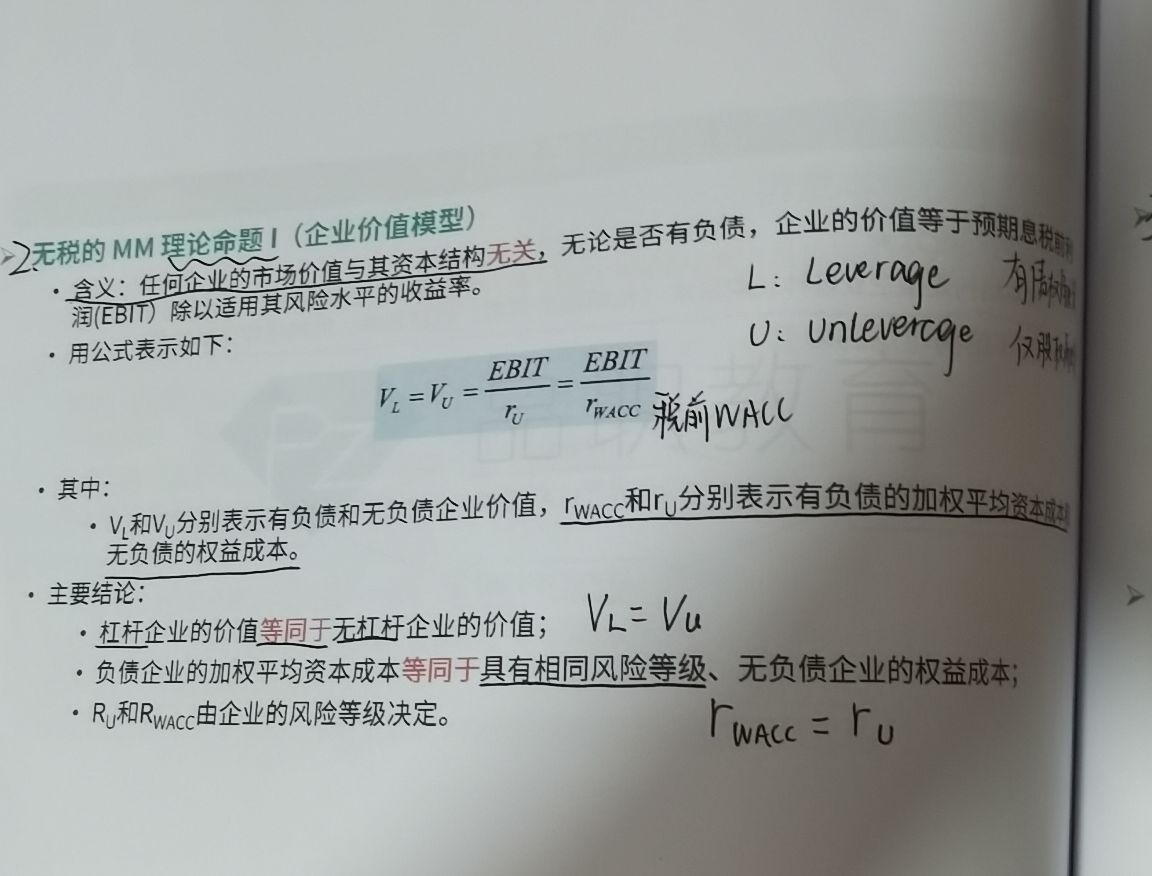 2.无税的 MM 理论命题 I（企业价值模型）
· 含义：任何企业的市场价值与其资本结构无关，无论是否有负债，企业的价值等于预期息税前利
润(EBIT）除以适用其风险水平的收益率。
L: Leverage 有债
U: Unleverage 仅股
· 用公式表示如下：
V_L = V_U = EBIT/r_U = EBIT/r_WACC 税前WACC
品职教育
· 其中：
· V_L和V_U分别表示有负债和无负债企业价值，r_WACC和r_U分别表示有负债的加权平均资本成本
无负债的权益成本。
· 主要结论：
· 杠杆企业的价值等同于无杠杆企业的价值； V_L = V_U
· 负债企业的加权平均资本成本等同于具有相同风险等级、无负债企业的权益成本；
· R_U和R_WACC由企业的风险等级决定。
r_WACC = r_U